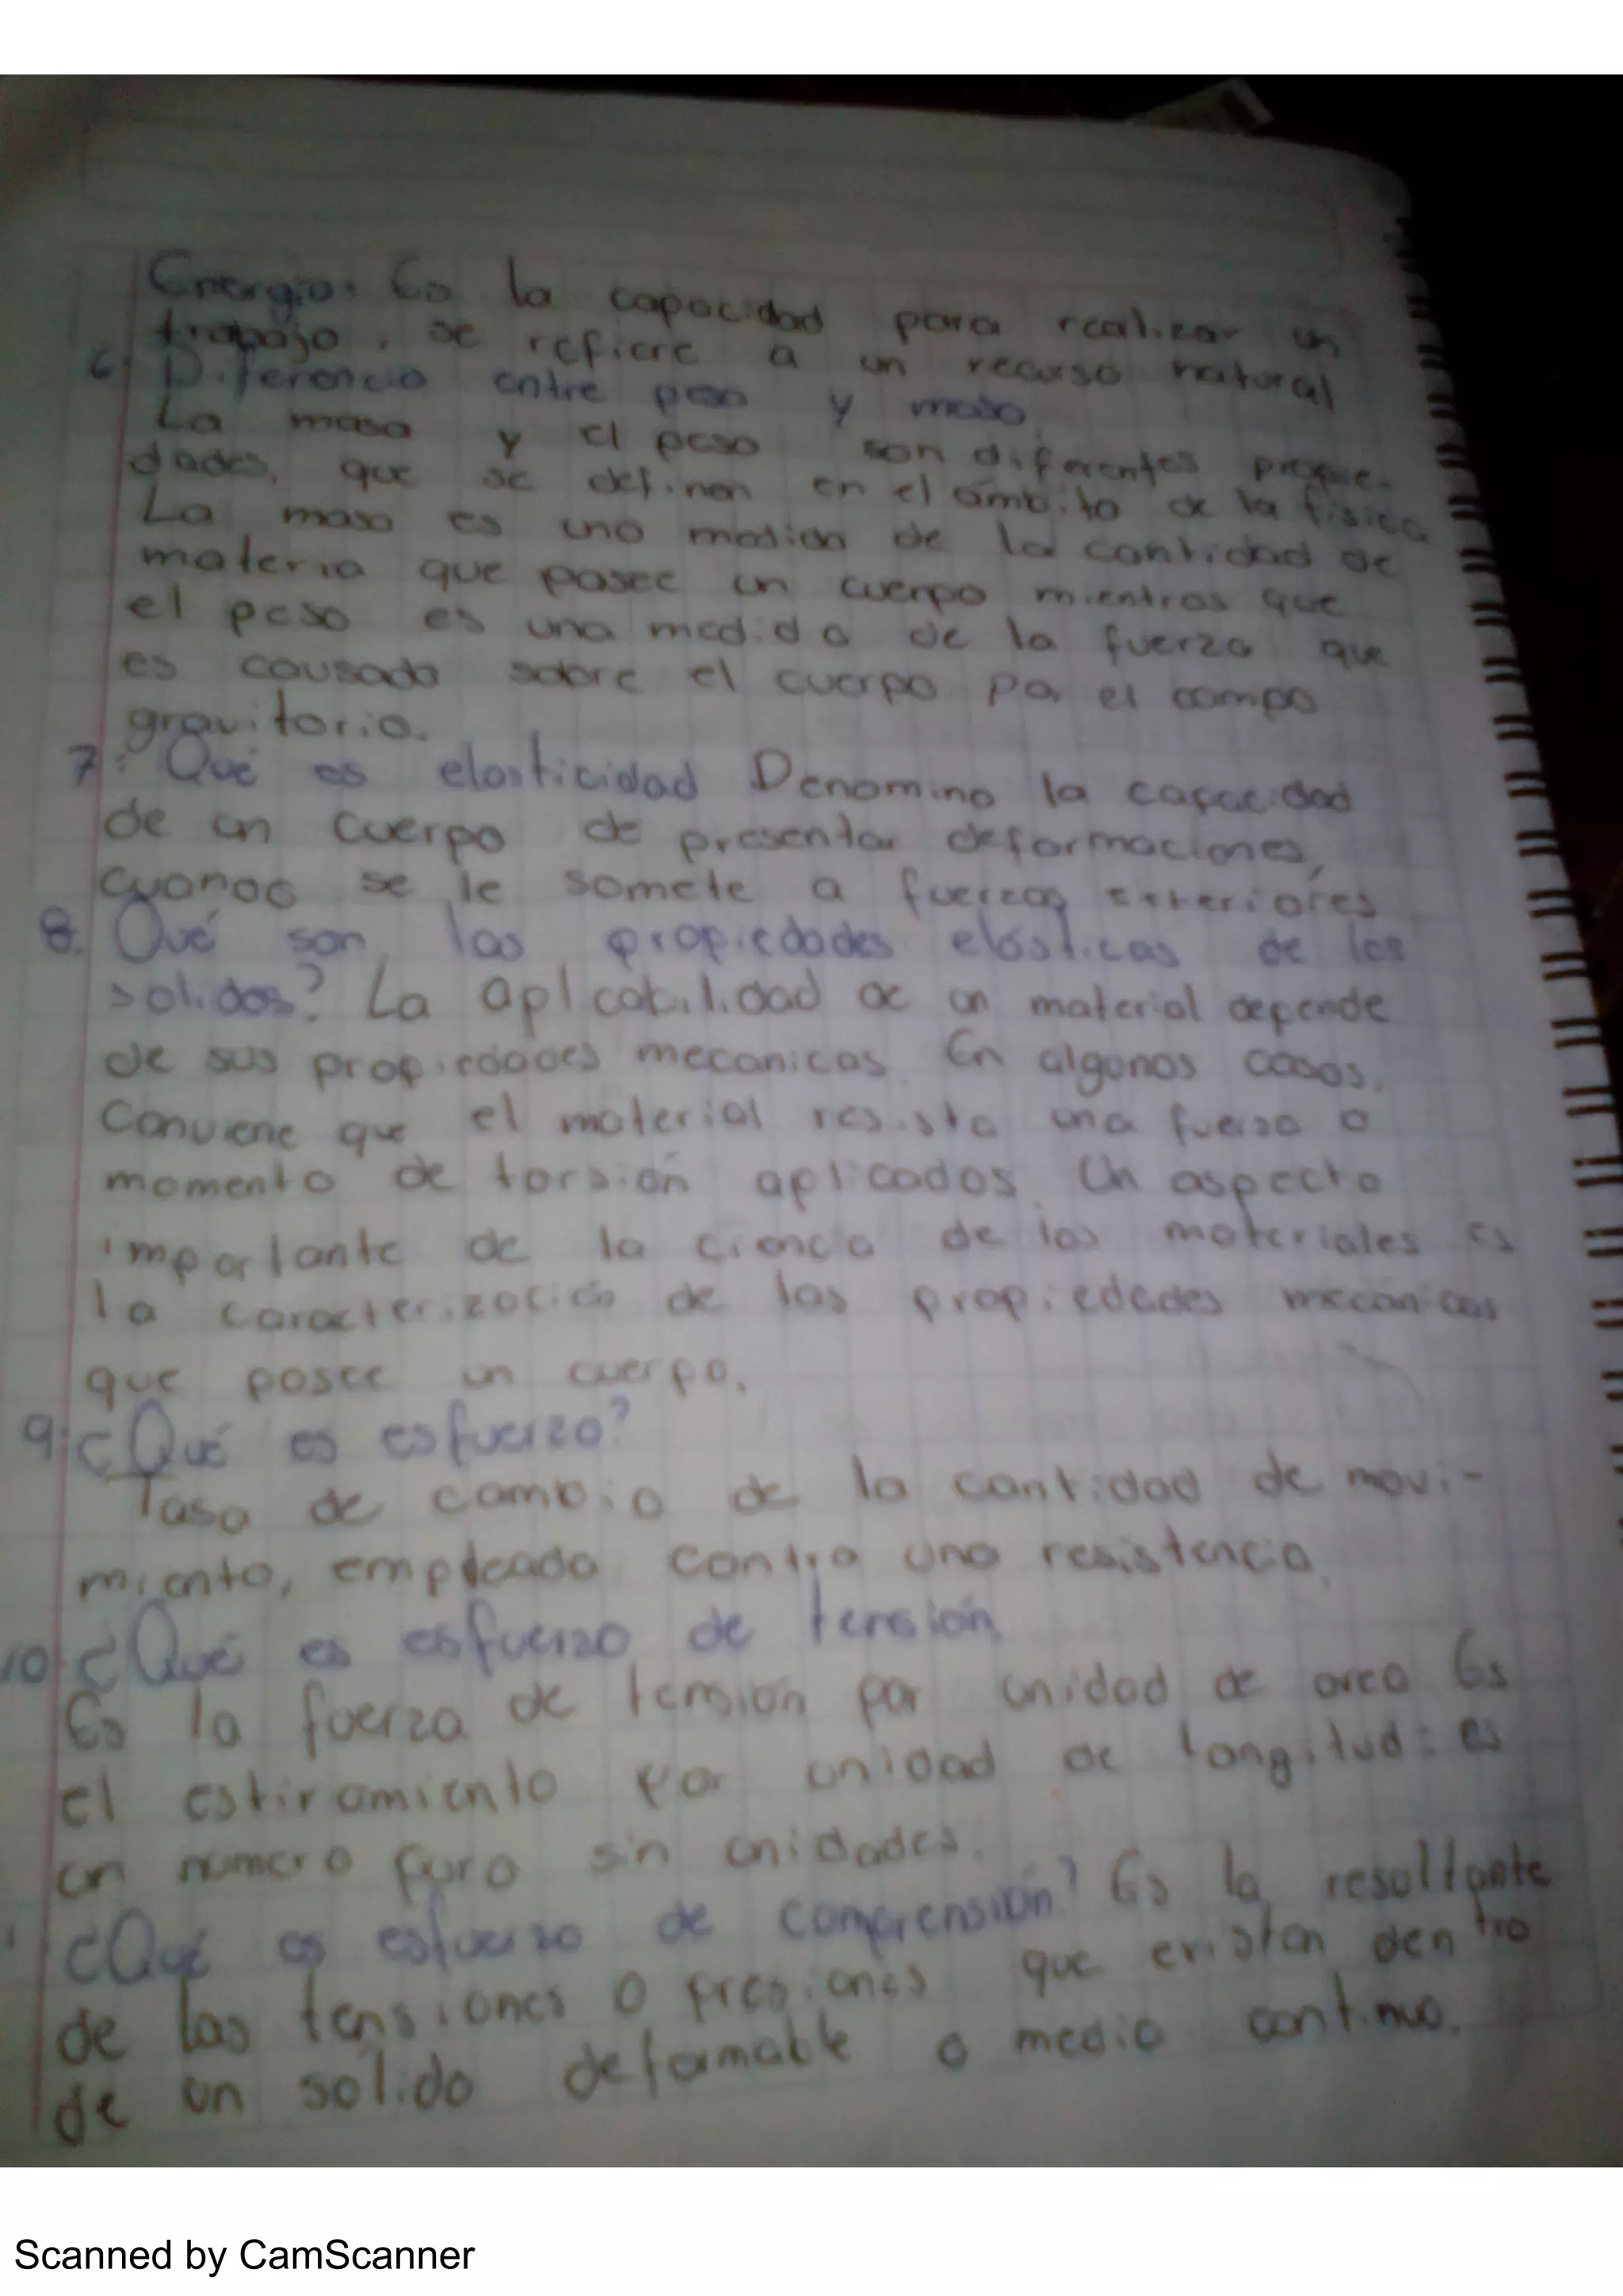 Energia: Es la capacidad para realizar un
trabajo, se refiere a un recurso natural
6: Diferencia entre peso y masa.
La masa y el peso son diferentes propie-
dades, que se definen en el ámbito de la fisica
La masa es una medida de la cantidad de
materia que posee un cuerpo mientras que
el peso es una medida de la fuerza que
es causada sobre el cuerpo por el campo
gravitorio.
7: Qué es elasticidad Denomina la capacidad
de un cuerpo de presentar deformaciones,
cuanoo se le somete a fuerzas exteriores
8. Qué son las propiedades elásticas de los
solidos? La aplicabilidad de un material depende
de sus propiedades mecanicas. En algunos casos,
Conviene que el material resista una fuerza o
momento de torsión aplicados. Un aspecto
importante de la ciencia de los materiales es
la caracterización de las propiededes mecanicas
que posee un cuerpo.
9: ¿Qué es esfuerzo?
Tasa de cambio de la cantidad de movi-
miento, empleada contra una resistencia.
10: ¿Qué es esfuerzo de tensión
Es la fuerza de tensión por unidad de area Es
el estiramiento por unidad de longitud: es
un número puro sin unidades.
¿Qué es esfuerzo de comprensión? Es la resultante
de las tensiones o presiones que existen dentro
de un sólido deformable o medio continuo.
Scanned by CamScanner